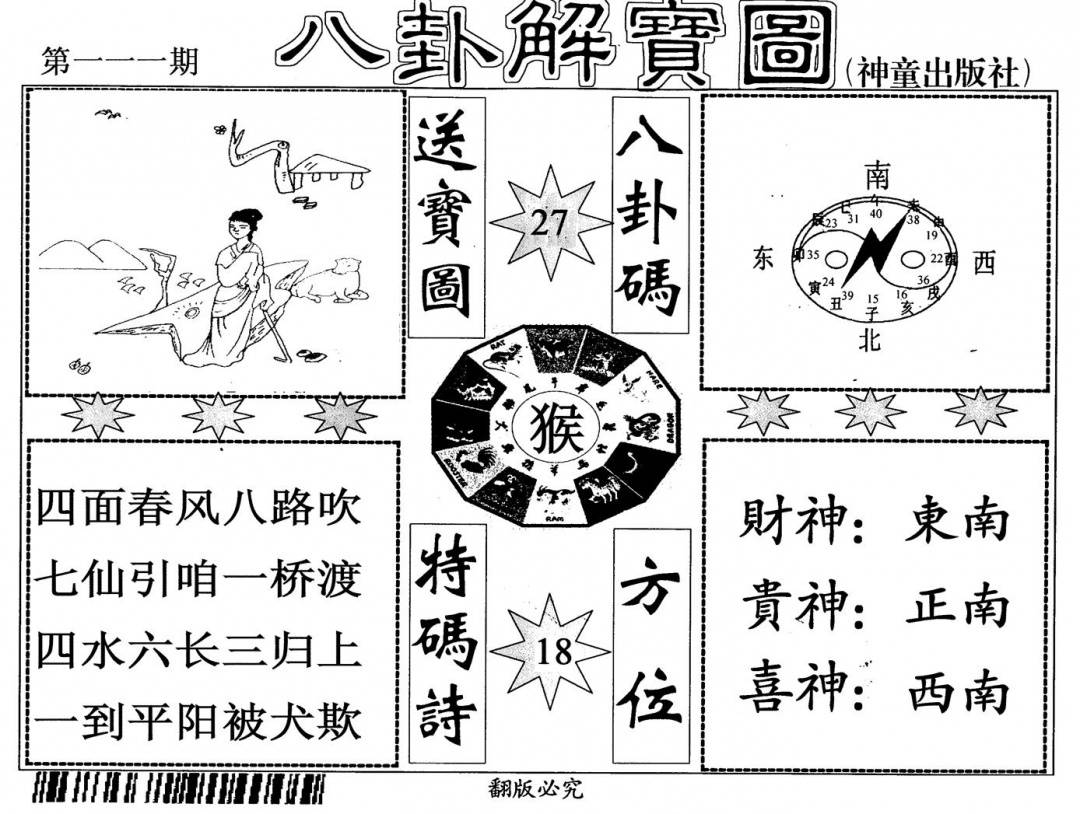 八卦解寶圖
第一一一期
(神童出版社)
送寶圖
27
八卦碼
南
午
巳
未
辰
申
40
31
38
23
19
东
卯
35
22
酉
西
24
36
寅
戌
39
15
16
丑
子
亥
北
RAT
HARE
DRAGON
猴
ROOSTER
RAM
四面春风八路吹
七仙引咱一桥渡
四水六长三归上
一到平阳被犬欺
特碼詩
18
方位
財神：東南
貴神：正南
喜神：西南
翻版必究